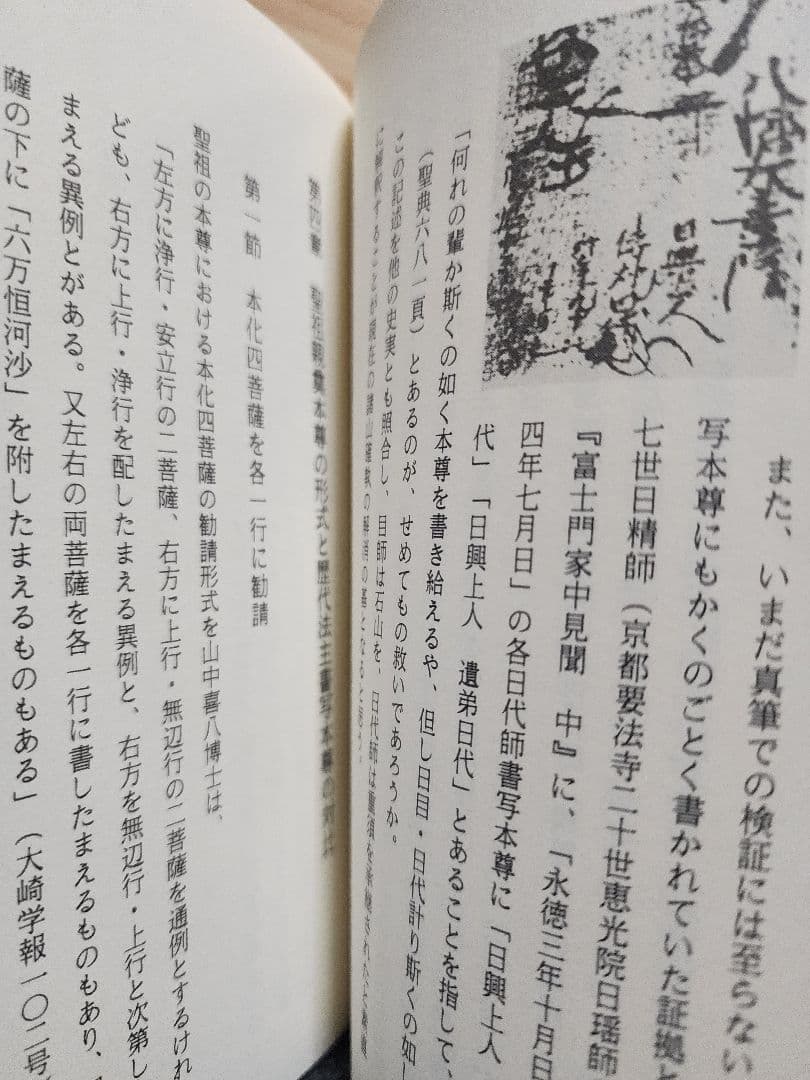 八幡大菩薩
日興上人
また、いまだ真筆での検証には至らない
写本尊にもかくのごとく書かれていた証拠と
七世日精師（京都要法寺二十世恵光院日瑤師
『富士門家中見聞　中』に、「永徳三年十月日
四年七月日」の各日代師書写本尊に「日興上人
代」「日興上人　遺弟日代」とあることを指して、
「何れの輩か斯くの如く本尊を書き給えるや、但し日目・日代計り斯くの如し
（聖典六八一頁）とあるのが、せめてもの救いであろうか。
この記述を他の史実とも照合し、目師は石山を、日代師は重須を承継された
に解釈することが現在の諸山
第四章　聖祖親筆本尊の形式と歴代法主書写本尊の対比
第一節　本化四菩薩を各一行に勧請
聖祖の本尊における本化四菩薩の勧請形式を山中喜八博士は、
「左方に浄行・安立行の二菩薩、右方に上行・無辺行の二菩薩を通例とするけれ
ども、右方に上行・浄行を配したまえる異例と、右方を無辺行・上行と次第し
まえる異例とがある。又左右の両菩薩を各一行に書したまえるものもあり、
薩の下に「六万恒河沙」を附したまえるものもある」（大崎学報一〇二号